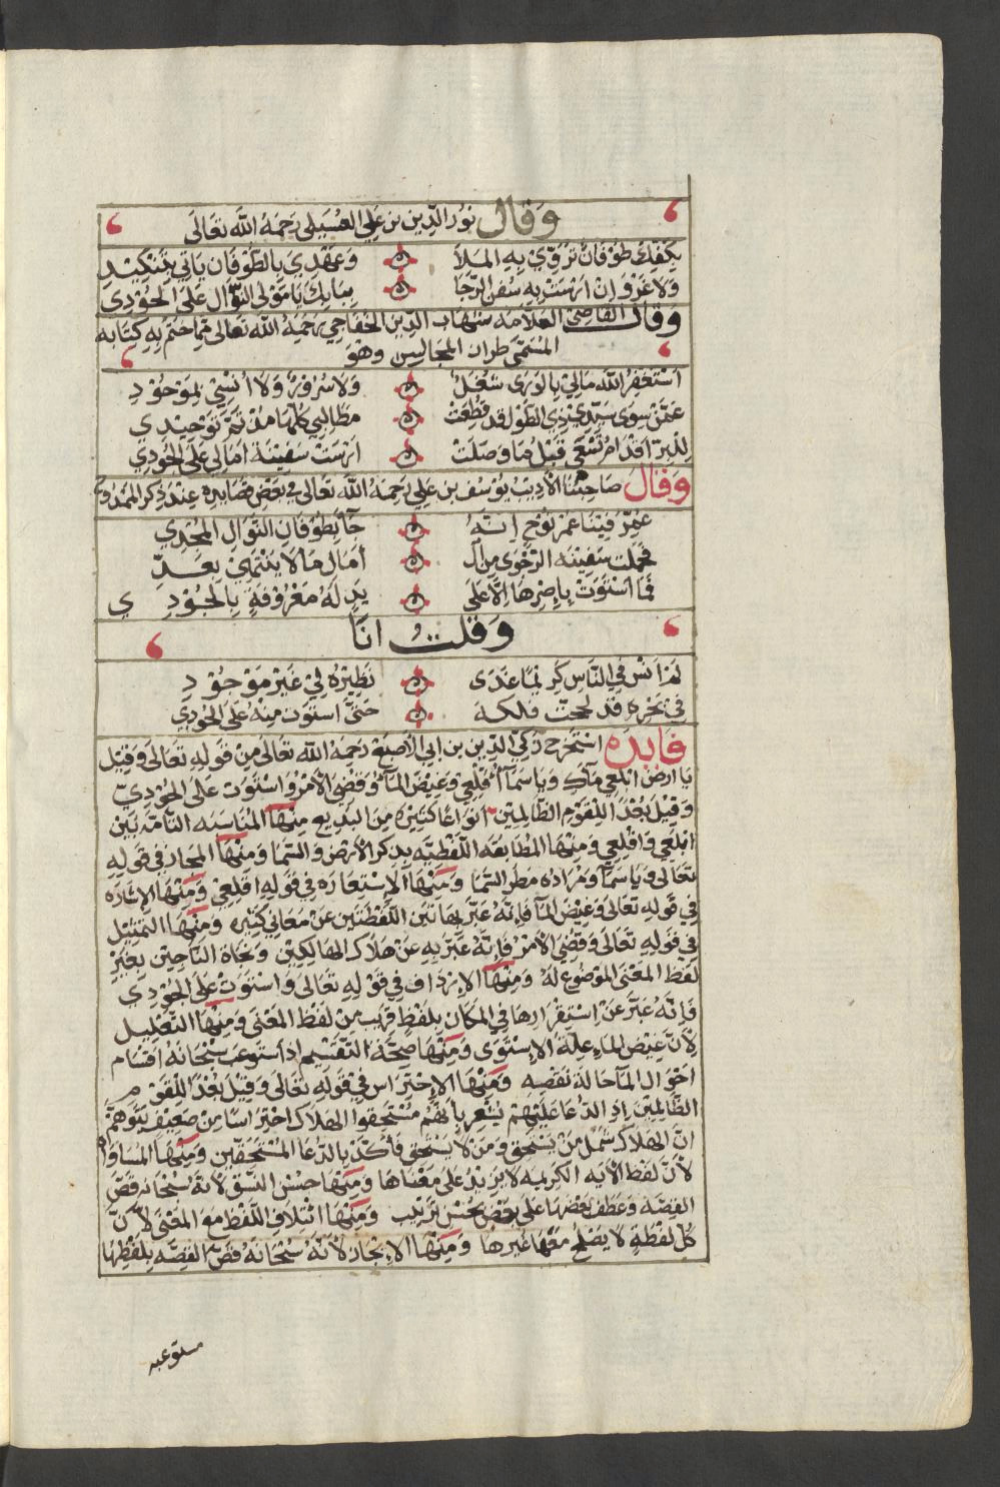 وَقَالَ نُورُ الدِّينِ بن عَلِي العُسَيلى رَحِمَهُ اللهُ تعَالَى
بِكَفِيكَ طُوفَانٌ تَرَوِّيْ بِهِ المَلَا وَعَهْدِيَ بِالطُّوْفَانِ يَأتي بِتَنْكِيْدِ
وَلَا غَرْوَ اِنْ اَرْسَتْ بِهِ سُفُنُ الرَّجَا بِبَابِكَ يَا مَوْلى النَّوَالِ عَلَى الجُوْدِيْ
وَقَالَ القاضى العَلّامَه شهَابُ الدّين الخَفَاجِي رَحِمَهُ الله تَعَالى مما خَتمَ بِهِ كِتَابَه
المُسَمَّى طراز المجَالِس وهْوَ
اَسْتَغفِرُ اللهَ مَالِيْ بِالوَرَى شُغُلٌ وَلَا سُرُوْرٌ وَلَا اُنْسِيْ بِمَوْجُوْدِ
عَمَّنْ سِوَى سَيِّدِيْ ذِي الطَّوْلِ قد قَطَعْتُ مَطَالِبِي كُلّهَا مُذْ تَمَّ تَوْحِيْدِي
لِلْبِرّ اَقْدَامُ تَسْعَى قَبْلُ مَا وَصَلَتْ اَرْسَتْ سَفِيْنَةُ اَمَالِي عَلَى الجُوْدِي
وَقَالَ صَاحِبُنَا الأَدِيْبُ يُوْسُف بن عَلِي رَحِمَهُ اللهُ تَعَالى في بَعْضِ قصَايدِه عِنْدَ ذِكر المَمْدُوح
عُمِّرَ فِيْنَا عُمْرَ نُوْحٍ اِنَّهُ جَآ بِطُوْفَانِ النَّوَالِ المُجْدِي
فَحَمَلَتْ سَفِيْنَه الرَّجْوَى مِنْ الْ اَمَالِ مَا لَا يَنْتَهِيْ بِعَدِّ
فَمَا اسْتَوَتْ بِاِصْرِهَا اِلَّا عَلَى يَدٍ لَهُ مَعْرُوْفَةٍ بِالجُوْدِي
وَقلتُ انَا
لَمْ اَنْسَ فِي النَّاسِ كَرِيمًا غَدَى نَظِيْرُهُ لِيْ غَيْرَ مَوْجُوْدِ
فِي بَحْرِهِ قد لججت فلكه حَتَّى اسْتَوَت مِنْهُ عَلَى الجُوْدِيْ
فَايدَه اسْتَخرَج زَكِيُّ الدِّين بن ابي الأَصْبَع رَحِمَهُ الله تَعَالَى مِنْ قَوْلِهِ تَعَالَى وَقِيْلَ
يَا ارضُ ابْلَعِي مَآكِ وَيَا سَمَآءُ اَقْلِعِي وَغِيْضَ المَآءُ وَقُضِيَ الأَمْرُ وَاسْتَوَتْ عَلَى الجُوْدِيِّ
وَقِيْلَ بُعْدًا لِلْقَوْمِ الظَّالِمِيْنَ اَنْوَاعًا كَثِيْرَةً مِنَ البَدِيْع مِنْهَا المُنَاسَبَه التآمّه بَيْن
ابْلَعِي وَاقْلِعِي وَمِنْهَا المُطَابَقَه اللَّفْظِيَّه بِذِكْرِ الأرْضِ وَالسَّمَا وَمِنْهَا المجَاز فِي قَوْلِهِ
تَعَالى وَيَا سَمَآءُ وَمُرَادُه مَطر السَّمَا وَمِنْهَا الإسْتِعَارَه فِي قَوْلِهِ اَقْلِعِيْ وَمِنْهَا الإشَارَه
فِي قَوْلِهِ تَعَالَى وَغِيْضَ المَآءُ فَاِنَّهُ عَبَّرَ بِهَاتَيْنِ اللَّفْظَتَيْن عَنْ مَعَانِي كَثِيْره وَمِنْهَا التَّمْثِيْل
فِي قَوْلِهِ تَعَالَى وَقُضِيَ الأَمْرُ فَاِنَّهُ عَبَّرَ بِهِ عَنْ هَلَاك الهَالِكِيْنَ وَنَجَاة النَّاجِيْن بِغَيْرِ
لَفْظِ المَعْنَى المَوْضُوْعِ لَهُ وَمِنْهَا الإِرْدَاف فِي قَوْلِهِ تَعَالَى وَاسْتَوَتْ عَلَى الجُوْدِي
فَاِنَّهُ عَبَّرَ عَنْ اِسْتِقْرَارِهَا فِي المَكَان بِلَفْظٍ قَرِيْب مِنْ لَفْظِ المَعْنَى وَمِنْهَا التَّعْلِيْل
لِأَنَّ غِيْضَ المَاء عِلَّة الإسْتِوَى وَمِنْهَا صِحَّة التَّقْسِيْم اذ استَوْعَبَ سُبْحَانَه اَقْسَام
اَحْوَال المَآ حَالَة نَقْصِه وَمِنْهَا الإحْتِرَاس فِي قَوْلِهِ تَعَالَى وَقِيْلَ بُعْدًا لِلْقَوْمِ
الظَّالِمِيْنَ اِذِ الدُّعَا عَلَيْهِمْ يُشْعِر بِاَنَّهُمْ مُسْتَحِقّوا الهَلَاك احْتِرَاسًا مِنْ ضَعِيْف يَتَوَهَّم
اَنَّ الهَلَاك شمل مَنْ يَسْتَحِقّ وَمَنْ لَا يَسْتَحِقّ فَأكّد بِالدُّعَا المُسْتَحِقّيْن وَمِنْهَا المُسَاوَاة
لأَنَّ لَفْظ الأيه الكَرِيمه لَا يَزِيْدُ عَلَى مَعْنَاهَا وَمِنْهَا حُسْن النَّسَق لأَنَّهُ سُبْحَانَه قَصَّ
القِصَّه وَعَطَفَ بَعْضَهَا عَلَى بَعْضٍ بحُسْن تَرْتِيْب وَمِنْهَا ائْتِلَاف اللَّفْظِ مَعَ المَعْنَى لأنَّ
كُلّ لَفْظَةٍ لَا يَصْلُح مَعَهَا غَيْرهَا وَمِنْهَا الإيْجَاز لأَنَّهُ سُبْحَانَهُ قَصَّ القِصَّه بِلَفْظِهَا
مستوعبه